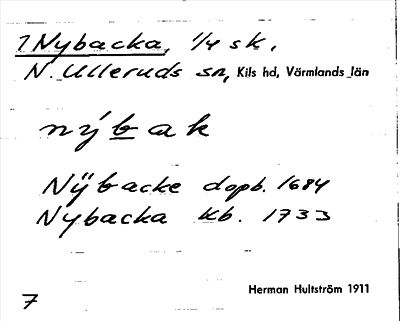 7 Nybacka, 1/4 sk.
N. Ulleruds sn, Kils hd, Värmlands län
nýbak
Nÿbacke dopb. 1684
Nybacka kb. 1733
7
Herman Hultström 1911